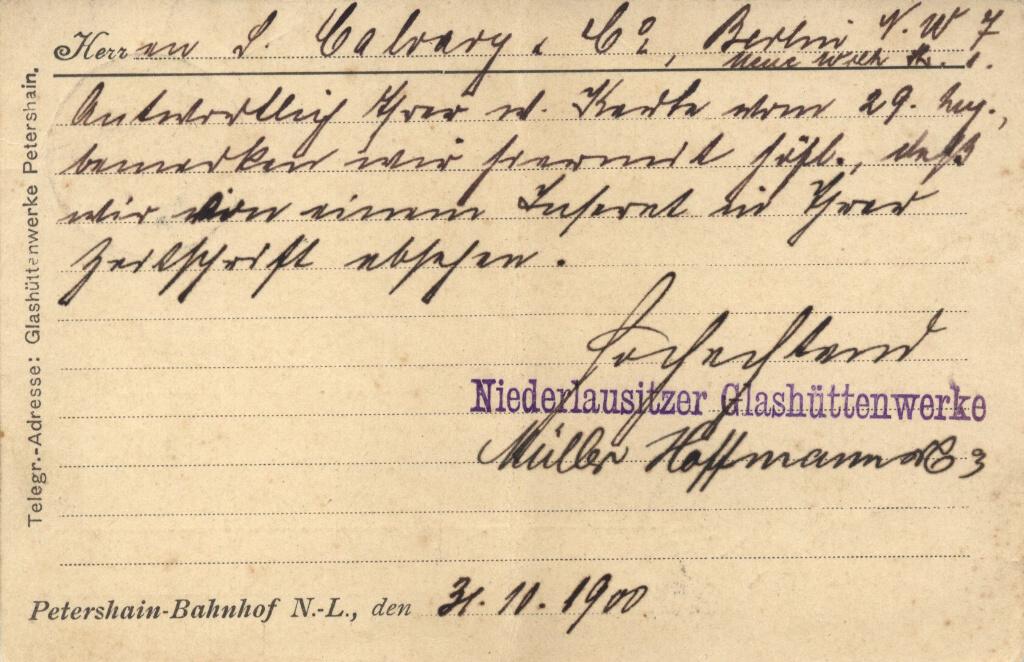 Herren S. Calvary & Co, Berlin N.W 7
neue Wilh. Str. 1.
Antwortlich Ihrer w. Karte vom 29. huj.,
bemerken wir hiermit höfl., daß
wir von einem Inserat in Ihrer
Zeitschrift absehen.
Hochachtend
Niederlausitzer Glashüttenwerke
Müller Hoffmann & Co
Petershain-Bahnhof N.-L., den 31.10.1900
Telegr.-Adresse: Glashüttenwerke Petershain.